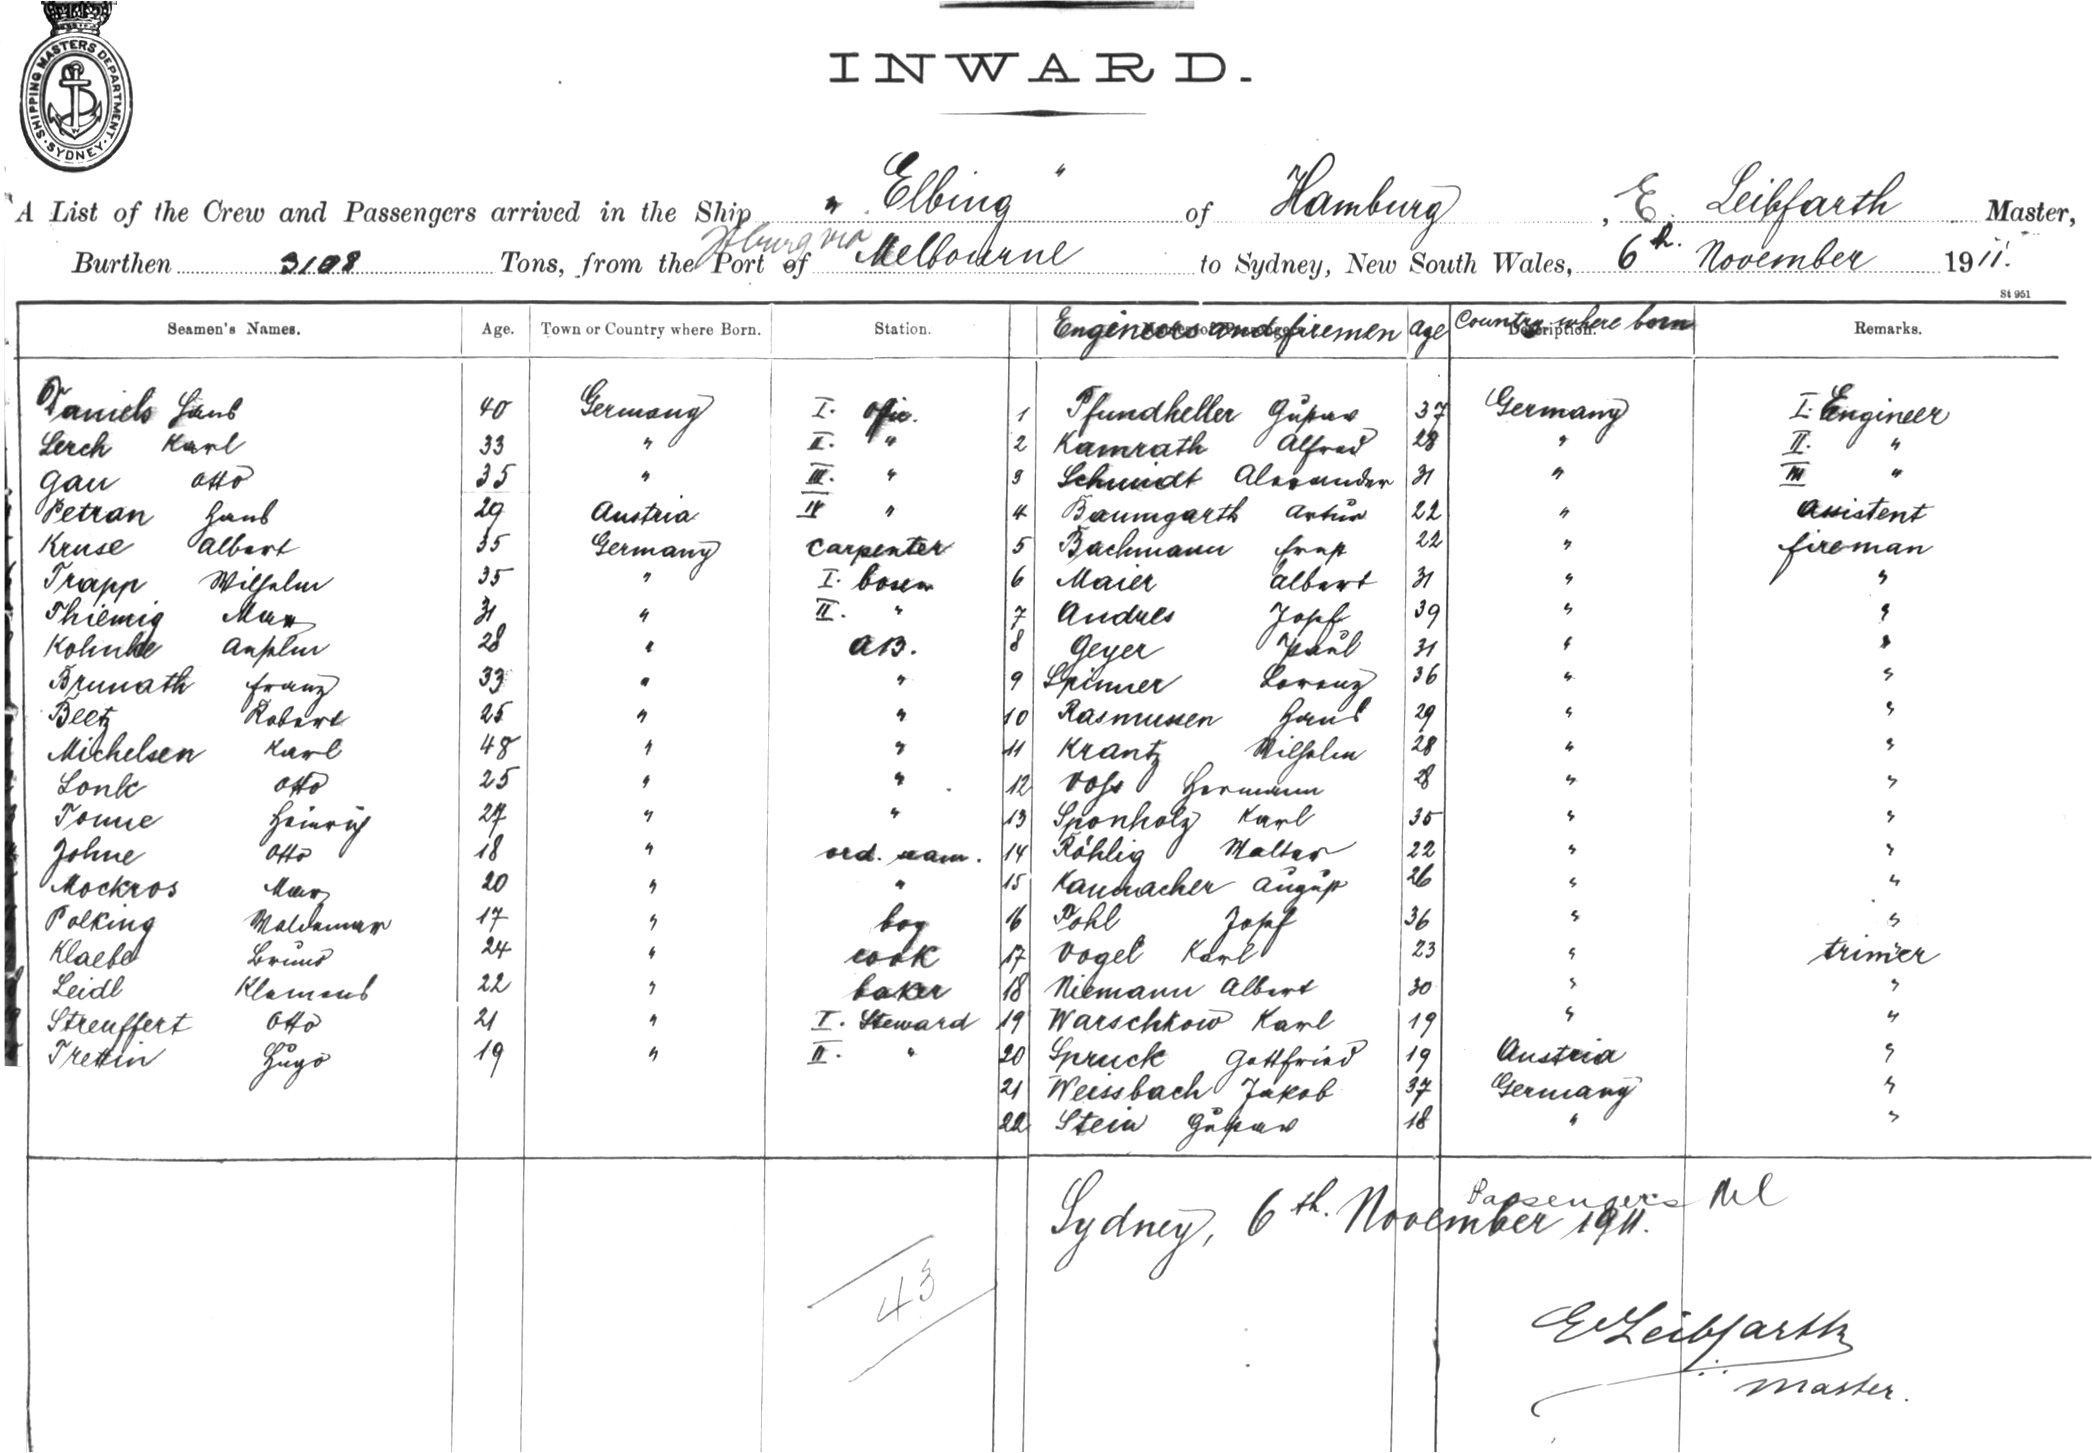 SHIPPING MASTERS DEPARTMENT. SYDNEY.
INWARD.
A List of the Crew and Passengers arrived in the Ship "Elbing" of Hamburg, E. Leibfarth Master,
Burthen 3108 Tons, from the Port of Hburg via Melbourne to Sydney, New South Wales, 6th. November 1911.
St 951
Seamen's Names. Age. Town or Country where Born. Station. Engineers and firemen Age Country where born Remarks.
Daniels Hans 40 Germany I. offic. 1 Pfundheller Gustav 37 Germany I. Engineer
Lerch Karl 33 " II. " 2 Kamrath Alfred 28 " II. "
Gau Otto 35 " III. " 3 Schmidt Alexander 31 " III "
Petran Hans 29 Austria IV " 4 Baumgarth Artur 22 " Assistent
Kruse Albert 35 Germany Carpenter 5 Bachmann Ernst 22 " fireman
Trapp Wilhelm 35 " I. bosen 6 Maier Albert 31 " "
Thiemig Max 31 " II. " 7 Andres Josef 39 " "
Kohnke Anselm 28 " AB. 8 Geyer Paul 31 " "
Brunath Franz 33 " " 9 Spinner Lorenz 36 " "
Beetz Robert 25 " " 10 Rasmussen Hans 29 " "
Michelsen Karl 48 " " 11 Krantz Wilhelm 28 " "
Lonk Otto 25 " " 12 Voss Hermann 28 " "
Tonne Heinrich 27 " " 13 Sponholz Karl 35 " "
Johne Otto 18 " ord. seam. 14 Röhlig Walter 22 " "
Mockros Max 20 " " 15 Kanmacher August 26 " "
Polking Woldemar 17 " boy 16 Pohl Josef 36 " "
Klaebe Bruno 24 " cook 17 Vogel Karl 23 " trimer
Leidl Klemens 22 " baker 18 Niemann Albert 30 " "
Streuffert Otto 21 " I. Steward 19 Warschkow Karl 19 " "
Trettin Hugo 19 " II. " 20 Spruck Gottfried 19 Austria "
21 Weissbach Jakob 37 Germany "
22 Stein Gustav 18 " "
Passengers Nil
Sydney, 6th. November 1911.
43
E. Leibfarth
Master.